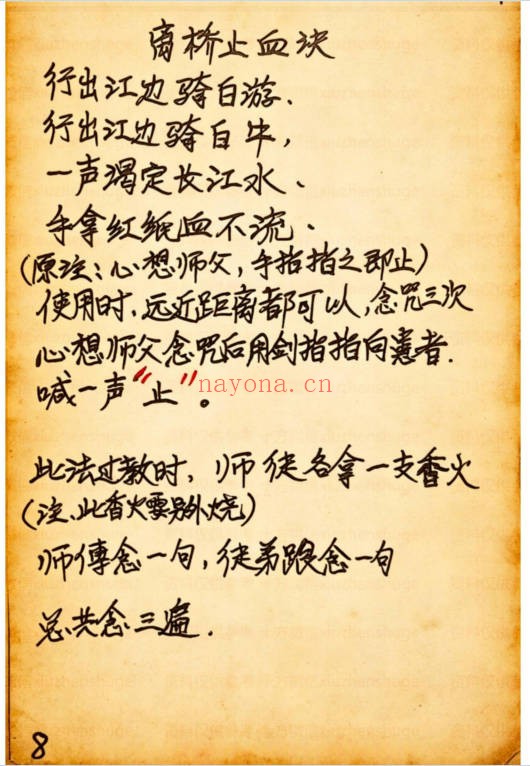 离桥止血决
行出江边骑白游.
行出江边骑白牛,
一声渴定长江水、
手拿红纸血不流.
(原注:心想师父,手指指之即止)
使用时.远近距离都可以,念咒三次
心想师父念咒后用剑指指向患者.
喊一声“止”。
nayona.cn
此法过教时,师徒各拿一支香火
(注、此香火要另外烧)
师傅念一句,徒弟跟念一句
总共念三遍.
8